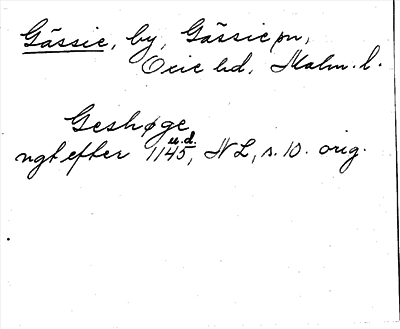 Gässie, by, Gässie sn,
Oxie hd, Malm. l.
Geshøge
u.d.
ngt efter 1145, NL, s. 10. orig.